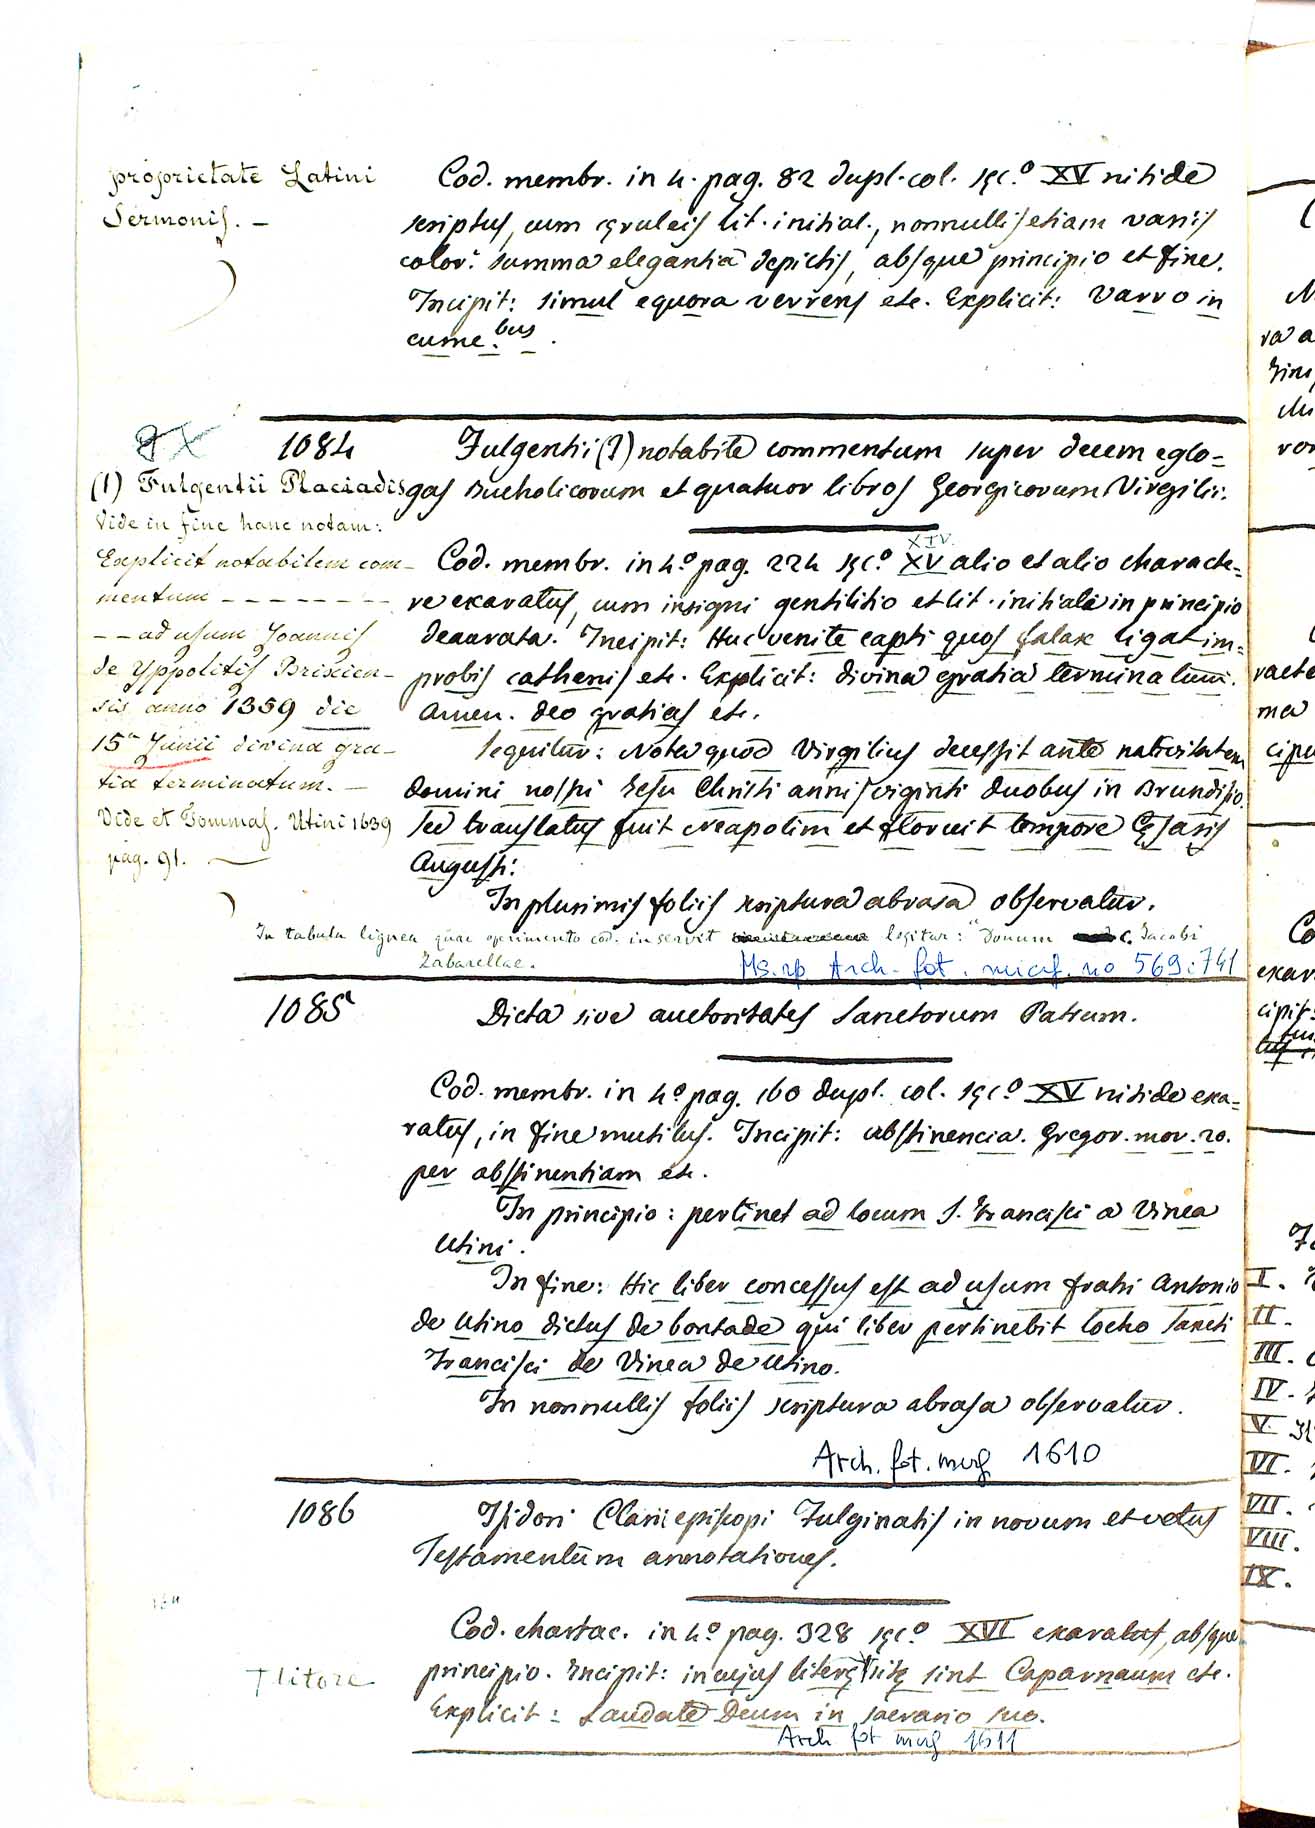 proprietate Latini
Sermonis. —
Cod. membr. in 4. pag. 82 dupl. col. sęc.º XV nitide
scriptus, cum cęruleis lit. initial., nonnullis etiam variis
color. summa elegantia depictis, absque principio et fine.
Incipit: simul equora verrens etc. Explicit: Varro in
cume.bus.
1084
Fulgentii (1) notabile commentum super decem eglo=
gas Bucholicorum et quatuor libros Georgicorum Virgilii.
(1) Fulgentii Placiadis
Vide in fine hanc notam:
Explicit notabilem com-
mentum - - - - - - - -
- - ad usum Joannis
de Yppolitis Brixien-
sis anno 1359 die
15ª Junii divina gra-
tia terminatum. —
Vide et Tommas. Utini 1639
pag. 91. —
XIV.
Cod. membr. in 4.º pag. 224 sęc.º XV alio et alio characte=
re exaratus, cum insigni gentilitio et lit. initiali in principio
deaurata. Incipit: Huc venite capti quos falax ligat im=
probis cathenis etc. Explicit: divina gratia terminatum.
Amen. deo gratias etc.
Sequitur: Nota quod Virgilius decessit ante nativitatem
domini nostri Jesu Christi annis viginti duobus in Brundisio.
sed translatus fuit Neapolim et floruit tempore Cęsaris
Augusti:
In plurimis foliis scriptura abrasa observatur.
In tabula lignea quae operimento cod. inservit legitur: "Donum C. Jacobi
Zabarellae.
Ms. rip. Arch. fot. micrf. no 569 : 741
1085
Dicta sive auctoritates Sanctorum Patrum.
Cod. membr. in 4.º pag. 160 dupl. col. sęc.º XV nitide exa=
ratus, in fine mutilus. Incipit: abstinencia. Gregor. mor. 20.
per abstinentiam etc.
In principio: pertinet ad locum S. Francisci a Vinea
Utini.
In fine: Hic liber concessus est ad usum fratri Antonio
de Utino dictus de bontade qui liber pertinebit locho Sancti
Francisci de Vinea de Utino.
In nonnullis foliis scriptura abrasa observatur.
Arch. fot. micrf 1610
1086
Isidori Clarii episcopi Fulginatis in novum et vetus
Testamentum annotationes.
Cod. chartac. in 4.º pag. 328 sęc.º XVI exaratus, absque
principio. Incipit: in cujus literę sitę sint Caparnaum etc.
Explicit: Laudate Deum in sacrario suo.
T litore
Arch fot micrf 1611